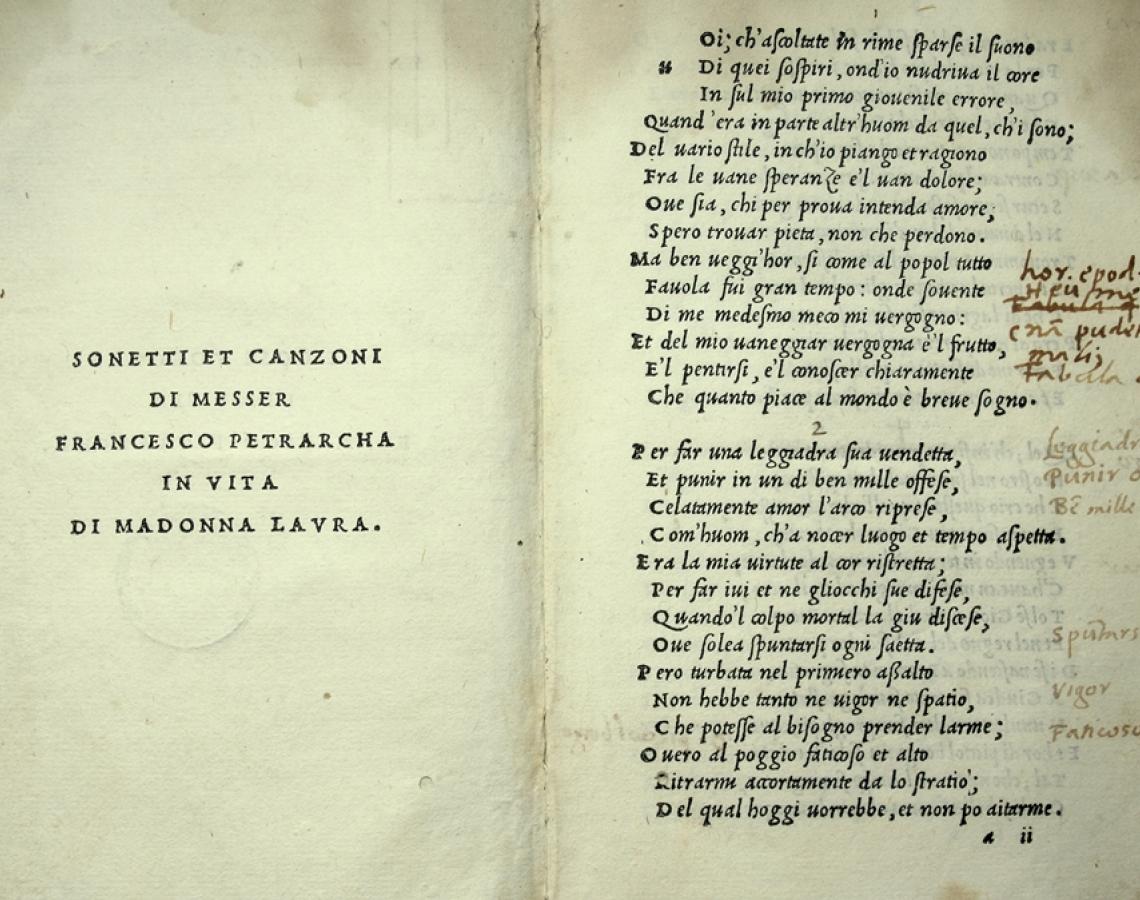 SONETTI ET CANZONI
DI MESSER
FRANCESCO PETRARCHA
IN VITA
DI MADONNA LAVRA.
Oi; ch'aſcoltate in rime ſparſe il ſuono
u Di quei ſoſpiri, ond'io nudriua il core
In ſul mio primo giouenile errore,
Quand'era in parte altr'huom da quel, ch'i ſono;
Del uario ſtile, in ch'io piango et ragiono
Fra le uane ſperanze e'l uan dolore;
Oue ſia, chi per proua intenda amore,
Spero trouar pieta, non che perdono.
Ma ben ueggi'hor, ſi come al popol tutto
Fauola fui gran tempo: onde ſouente
Di me medeſmo meco mi uergogno:
Et del mio uaneggiar uergogna è'l frutto,
E'l pentirſi, e'l conoſcer chiaramente
Che quanto piace al mondo è breue ſogno.
hor. epod.
Heu me
Fabula
pudet
Fabula
2
Per far una leggiadra ſua uendetta,
Et punir in un di ben mille offeſe,
Celatamente amor l'arco ripreſe,
Com'huom, ch'a nocer luogo et tempo aſpetta.
Era la mia uirtute al cor riſtretta;
Per far iui et ne gliocchi ſue difeſe,
Quando'l colpo mortal la giu diſceſe,
Oue ſolea ſpuntarſi ogni ſaetta.
Pero turbata nel primiero aſſalto
Non hebbe tanto ne uigor ne ſpatio,
Che poteſſe al biſogno prender larme;
Ouero al poggio faticoſo et alto
Ritrarmi accortamente da lo ſtratio;
Del qual hoggi uorrebbe, et non po aitarme.
Leggiadr
Punir
Bē mille
Vigor
Faticoso
a ii